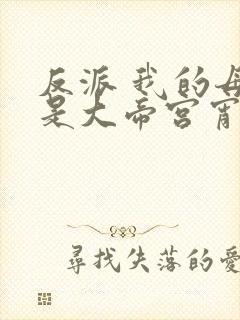 反派 我的母
是大帝宫宵
尋找失落的愛